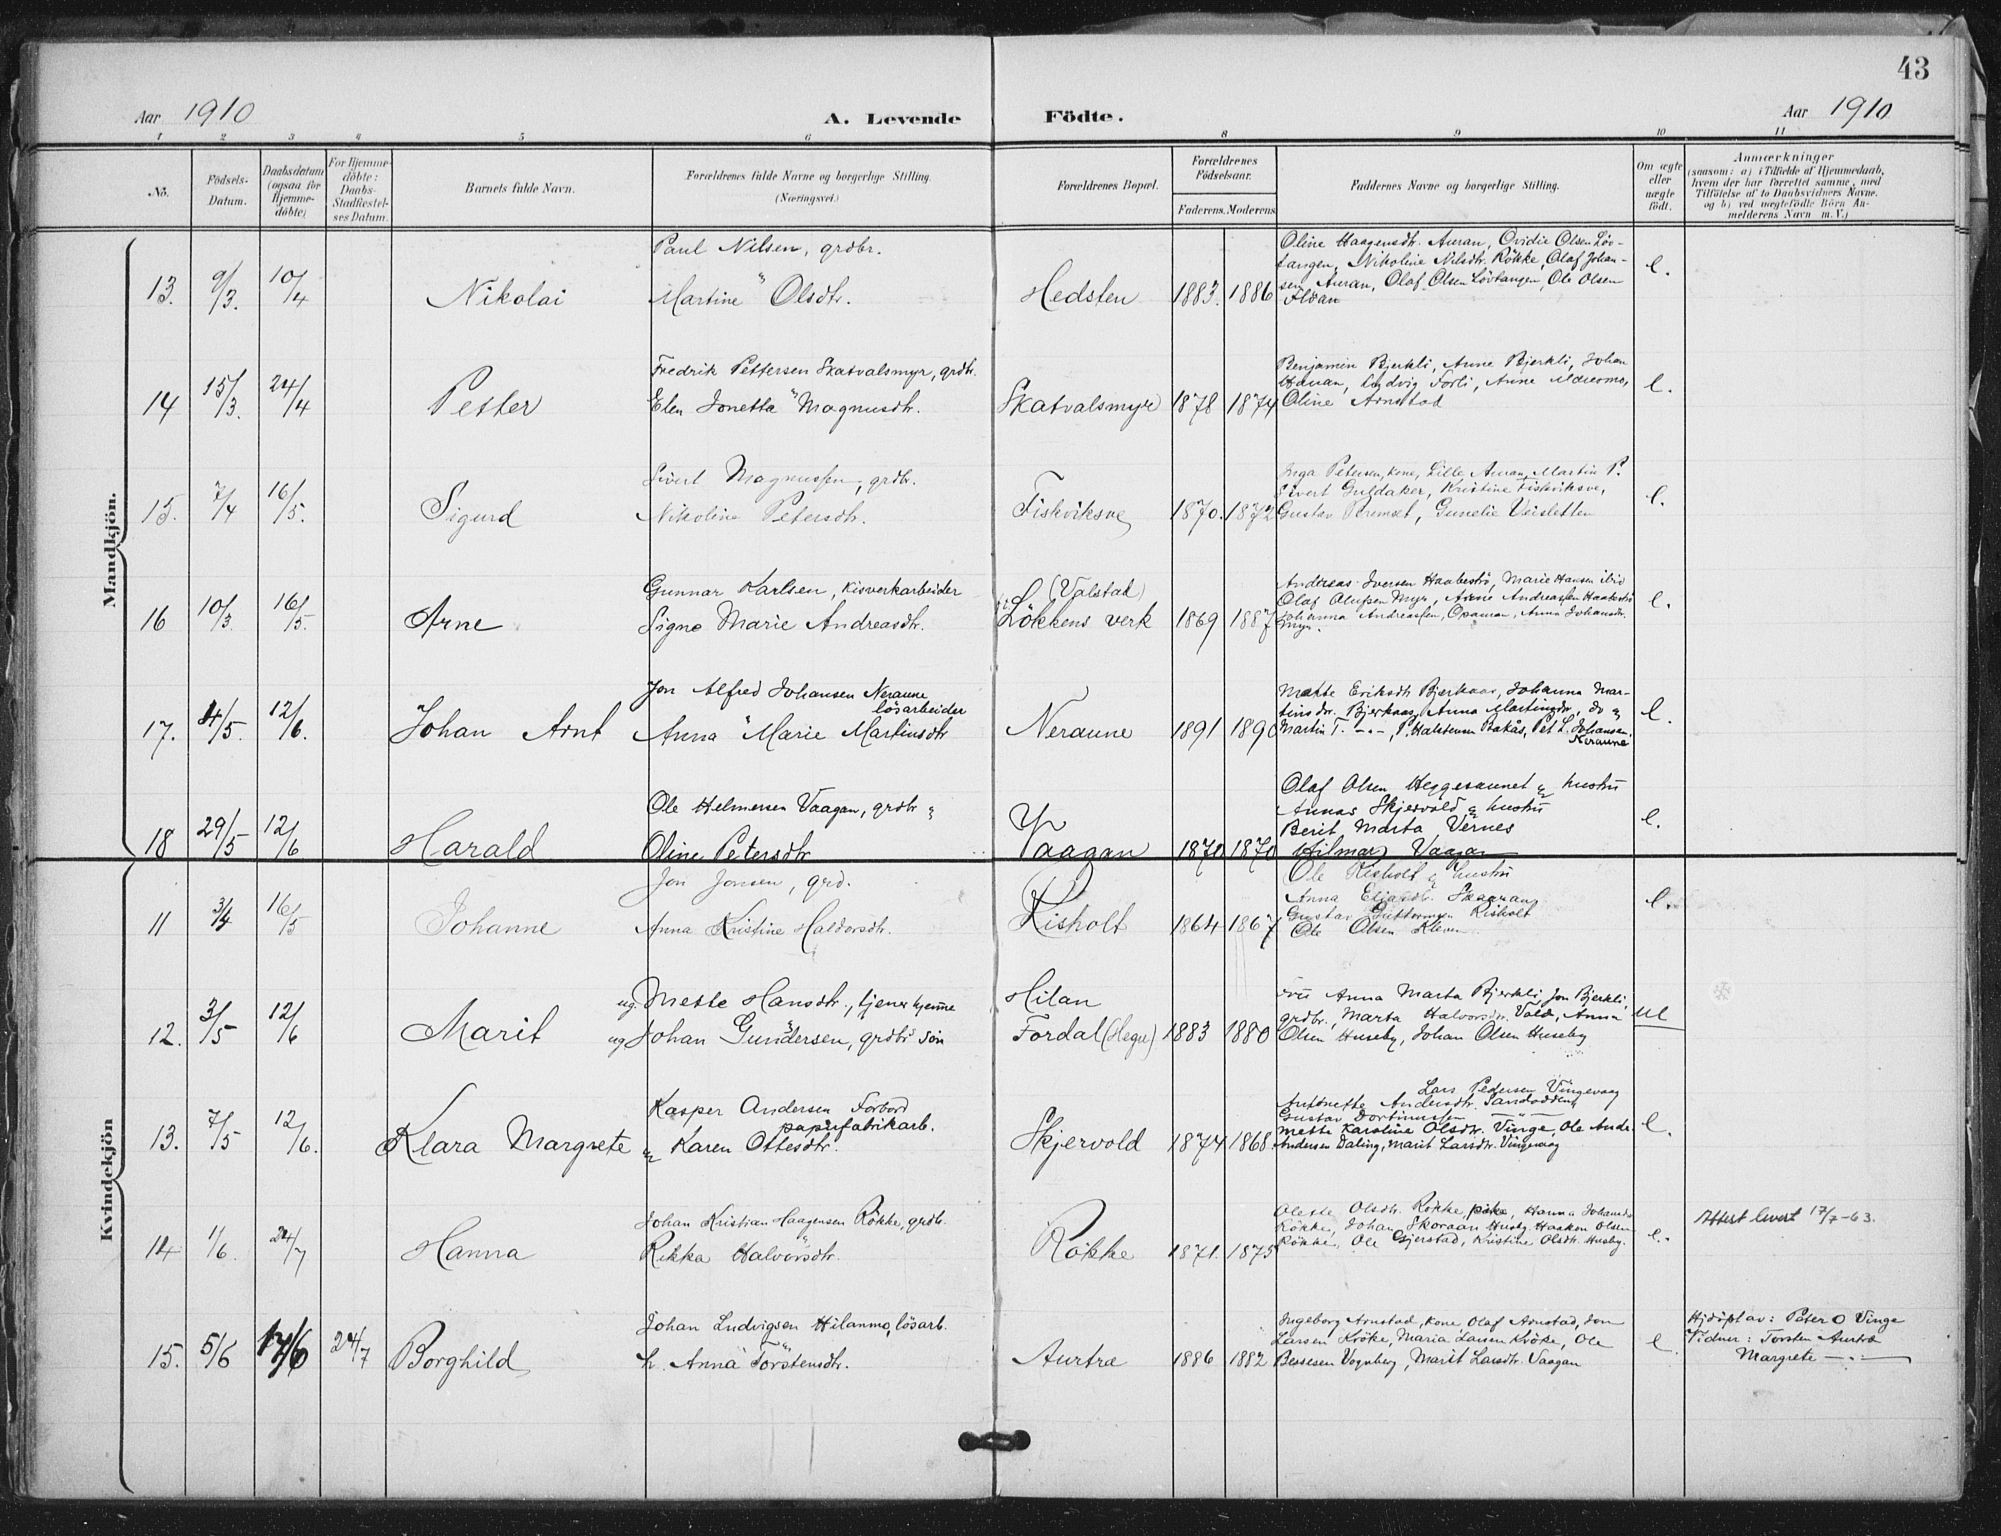 43
Aar 1910 A. Levende Födte. Aar 1910
1 2 3 4 5 6 8 9 10 11
No.
Födsels-Datum.
Daabsdatum (ogsaa for Hjemme-döbte)
For Hjemme-döbte: Daabs-Stadfæstel-ses Datum.
Barnets fulde Navn.
Forældrenes fulde Navne og borgerlige Stilling. (Næringsvei.)
Forældrenes Bopæl.
Forældrenes Födselsaar.
Faderens. Moderens.
Faddernes Navne og borgerlige Stilling.
Om ægte eller uægte födt.
Anmærkninger
(saasom: a) i Tilfælde af Hjemmedaab,
hvem der har forrettet samme, med
Tilföielse af to Daabsvidners Navne.
og b) ved uægtefödte Börn An-
melderens Navn m. V.)
Mandkjön.
13. 9/3. 10/4 Nikolai
Paul Nilsen, grdbr.
Martine Olsdtr.
Hedsten 1883. 1886
Oline Haagensdtr. Auran, Ovidie Olsen Löv-
tangen, Nikoline Nilsdtr. Rökke, Olaf Johan-
sen Auran, Olaf Olsen Lövtangen, Ole Olsen
Fldan
e.
14 15/3. 24/4 Petter
Fredrik Pettersen Skatvalsmyr, grdbr.
Elen Jonetta Magnusdtr.
Skatvalsmyr 1878 1874
Benjamin Bjerkli, Anne Bjerkli, Johan
Ludvig Forli, Anne
Oline Arnstad
e.
15. 7/4 16/5. Sigurd
Sivert Magnussen, grdbr.
Nikoline Petersdtr.
Fiskviksve 1870. 1872
Inga Petersen, kone, Lille Auran, Martin P.
Sivert Guldaker, Kristine Fiskviksve,
Gustav Premset, Gunelie Veisletten
e.
16 10/3. 16/5. Arne
Gunnar Karlsen, Kisverkarbeider
Signe Marie Andreasdtr.
(Valstad)
Lökkens verk 1869 1887
Andreas Iversen Haabeströ, Marie Hansen ibid
Olaf Olufsen Myr, Arne Andreassen Haabeströ
Johanna Andreassen, Opaman, Anna Johansdtr.
Myr.
e.
17. 4/5. 12/6. Johan Arnt
Jon Alfred Johansen Neraune
lösarbeider
Anna Marie Martinsdtr
Neraune 1891 1890
Mette Eriksdtr Bjerkaas, Johanna Mar-
tinsdtr. Bjerkaas, Anna Martinsdtr, do
Martin T. -"-, P. Halstensen Bakås, Pet L. Johansen
Neraune
e.
18 29/5 12/6 Harald
Ole Helmersen Vaagan, grdbr
Oline Petersdtr
Vaagan 1870 1870
Olaf Olsen Heggesaunet og hustru
Annas Skjervold og hustru
Berit Marta Vernes
Hilmar Vaagan
e.
Kvindekjön
11 3/4 16/5 Johanne
Jon Jonsen, grd.
Anna Kristine Haldorsdtr.
Risholt 1864 1867
Ole Risholt og hustru
Anna Skaaran
Gustav Guttormsen Risholt
Ole Olsen Kleven
e.
12. 3/5 12/6 Marit
ug. Mette Hansdtr., tjener hjemme
ug Johan Gundersen, grdbr sön
Hilan
Fordal (Hegre) 1883 1880
Anna Marta Bjerkli, Jon Bjerkli,
grdbr., Marta Halvorsdtr. Vold, Anna
Olsen Huseby, Johan Olsen Huseby
ue
13. 7/5 12/6. Klara Margrete
Kasper Andersen Forbord
papirfabrikarb.
Karen Ottesdtr.
Skjervold 1874 1868
Lars Pedersen Vingevaag
Antonette Andersdtr. Sandodden
Gustav Dortinussen -"-
Mette Karoline Olsdtr. Vinge, Ole Andr.
Andersen Daling, Marit Larsdtr. Vingevaag
e.
14 1/6. 24/7 Hanna
Johan Kristian Haagensen Rökke, grdbr.
Rikka Halvorsdtr.
Rökke 1871. 1875
Oleste Olsdtr. Rökke, pike, Hanna Johansdtr
Rökke, Johan Skoraan Husby, Haakon Olsen
Rökke, Ole Gjerstad, Kristine Olsdtr. Husby.
e.
Attest levert 17/7-63.
15. 5/6 17/6 24/7 Borghild
Johan Ludvigsen Hilanmo, lösarb.
h. Anna Torstensdtr.
Aurtræ 1886 1882
Ingeborg Arnstad, kone, Olaf Arnstad, Jon
Larsen Kröke, Maria Larsen Kröke, Ole
Bessesen Vognberg, Marit Larsdtr. Vaagan
e
Hjdöpt av: Peter O Vinge
Vidner: Torsten Aurtræ
Margrete -"-